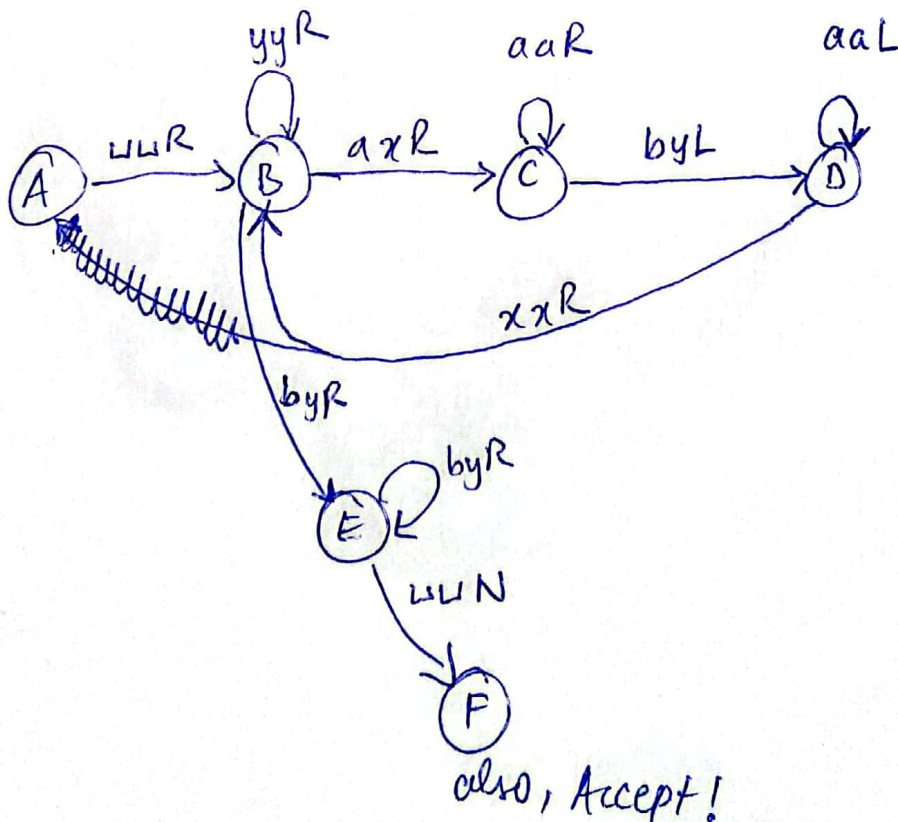 yyR aaR aaL
A ⊔⊔R B axR C byL D
xxR
byR
byR
E
⊔⊔N
F
also, Accept!